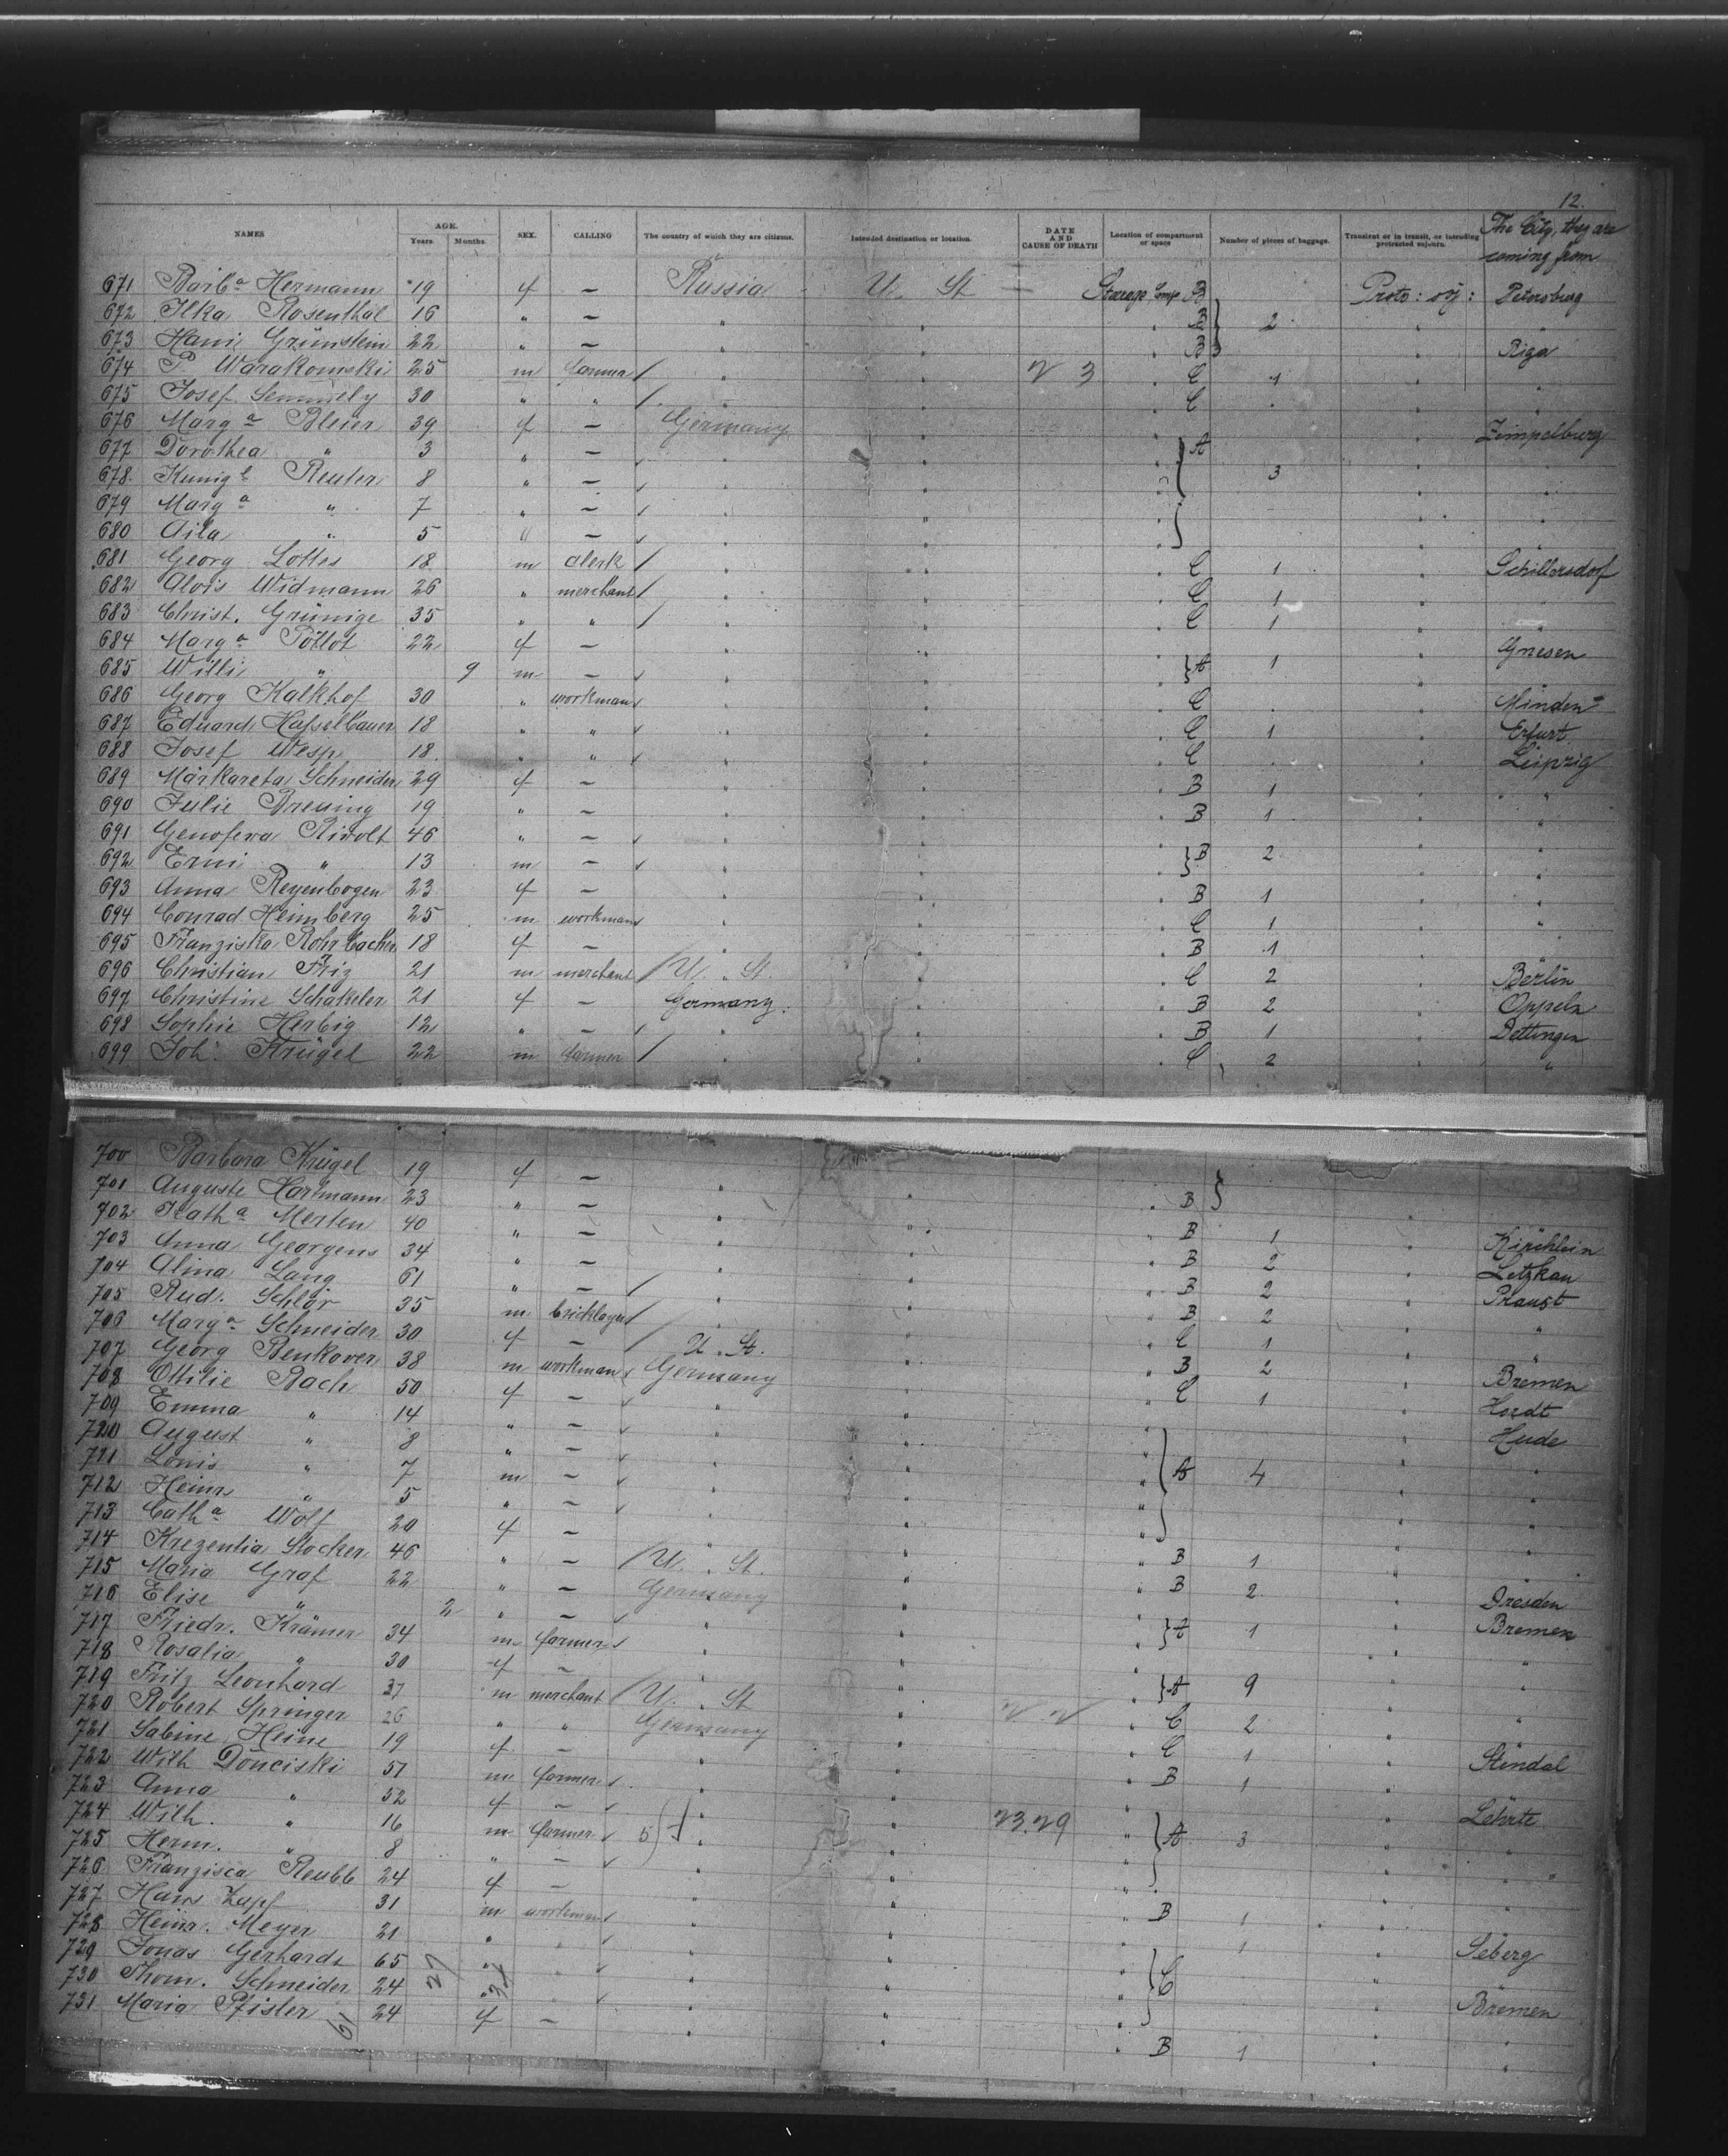 12.
NAMES AGE. Years. Months. SEX. CALLING The country of which they are citizens. Intended destination or location. DATE AND CAUSE OF DEATH Location of compartment or space Number of pieces of baggage. Transient or in transit, or intending protracted sojourn. The City, they are coming from
671 Barba Hermann 19 f — Russia U. St Steerage Comp B Protr: soj: Petersburg
672 Ilka Rosenthal 16 " — " " " B 2 " "
673 Hani Grünstein 22 " — " " " B " Riga
674 P. Warakomski 25 m farmer / " " " C 1 " "
675 Josef 30 " " / " " " C " "
676 Marga Bleier 39 f — Germany " " Zempelburg
677 Dorothea " 3 " — " " " A " "
678 Kunigt Reuter 8 " — " " " 3 " "
679 Marga " 7 " — " " " " "
680 " 5 " — " " " " "
681 Georg Lottes 18 m clerk / " " " C 1 " Schillersdorf
682 Alois Widmann 26 " merchant / " " " C 1 " "
683 Christ. Grünige 35 " " / " " " C 1 " "
684 Marga Pöllot 22 f — " " " Gnesen
685 Willi " 9 m — " " " A 1 " "
686 Georg Kalkhof 30 " workman " " " C " Minden
687 Eduard Hasselbauer 18 " " " " " C 1 " Erfurt
688 Josef Wesp 18 " " " " " C " Leipzig
689 Markareta Schneider 29 f — " " " B 1 " "
690 Julie Breuing 19 " — " " " B 1 " "
691 Genofeva Rivolt 46 " — " " " B 2 " "
692 Erni " 13 m — " " " " "
693 Anna Regenbogen 23 f — " " " B 1 " "
694 Conrad Heimberg 25 m workman " " " C 1 " "
695 Franziska Rohrbacher 18 f — " " " B 1 " "
696 Christian Friz 21 m merchant / U. St. " " C 2 " Berlin
697 Christine Schakeler 21 f — Germany " " B 2 " Oppeln
698 Sophie Herbig 12 " — / " " " B 1 " Dettingen
699 Joh. Krügel 22 m farmer / " " " C 2 " "
700 Barbara Krügel 19 f — " " " B
701 Auguste Hartmann 23 " — " " " B 1 " Kirchlein
702 Katha Merten 40 " — " " " B 2 " Letzkau
703 Anna Georgens 34 " — " " " B 2 " Praust
704 Alina Lang 61 " — / " " " B 2 " "
705 Rud. Schlör 35 m bricklayer / " " " C 1 " "
706 Marga Schneider 30 f — / U. St. " " B 2 " Bremen
707 Georg Benkover 38 m workman Germany " " C 1 " Hordt
708 Ottilie Bach 50 f — " " " Hude
709 Emma " 14 " — " " " A 4 " "
710 August " 8 " — " " " " "
711 Louis " 7 m — " " " " "
712 Heinr " 5 " — " " " " "
713 Catha Wolf 20 f — " " " B 1 " "
714 Krezentia Stocker 46 " — / U. St. " " B 2 " Dresden
715 Maria Graf 22 " — Germany " " A 1 " Bremen
716 Elise " 2 " — " " " " "
717 Friedr. Krämer 34 m farmer " " " A 9 " "
718 Rosalia " 30 f — " " " " "
719 Fritz Leonhard 37 m merchant / U. St " " C 2 " "
720 Robert Springer 26 " " Germany " " C 1 " Stendal
721 Sabine Heine 19 f — " " " B 1 " "
722 Wilh Donciski 57 m farmer " " " Lehrte
723 Anna " 52 f — " " " A 3 " "
724 Wilh. " 16 m farmer 5 " " 23.29 " "
725 Herm. " 8 " — " " " " "
726 Franzisca Reubb 24 f — " " " B 1 " "
727 Hans Zapf 31 m workman " " " 1 " Seberg
728 Heinr. Meyer 21 " " " " " C " "
729 Jonas Gerhardt 65 " " " " " " Bremen
730 Thom. Schneider 24 " " " " " " "
731 Maria Pfister 24 f — " " " B 1 " "